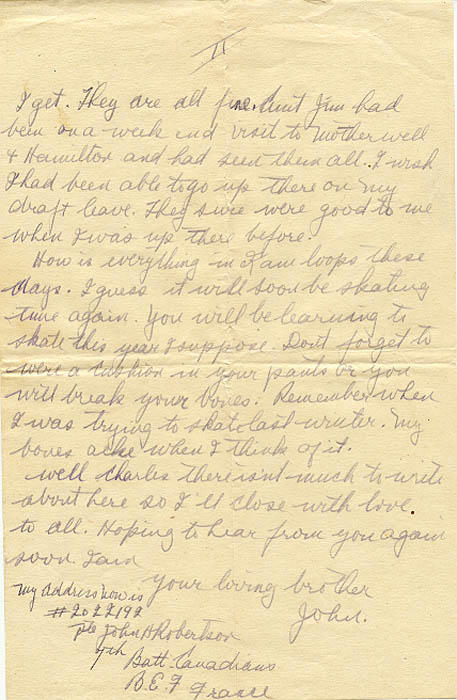 II
I get. They are all fine. Aunt Jim had
been on a week end visit to Motherwell
& Hamilton and had seen them all. I wish
I had been able to go up there on my
draft leave. They sure were good to me
when I was up there before.
How is everything in Kamloops these
days. I guess it will soon be skating
time again. You will be learning to
skate this year I suppose. Dont forget to
were a cushion in your pants or you
will break your bones. Remember when
I was trying to skate last winter. My
bones ache when I think of it.
Well Charles there isnt much to write
about here so I'll close with love
to all. Hoping to hear from you again
soon. I am
Your loving brother
John.
My address now is
#2022192
Pte John A Robertson
7th Batt. Canadians
B.E.F. France